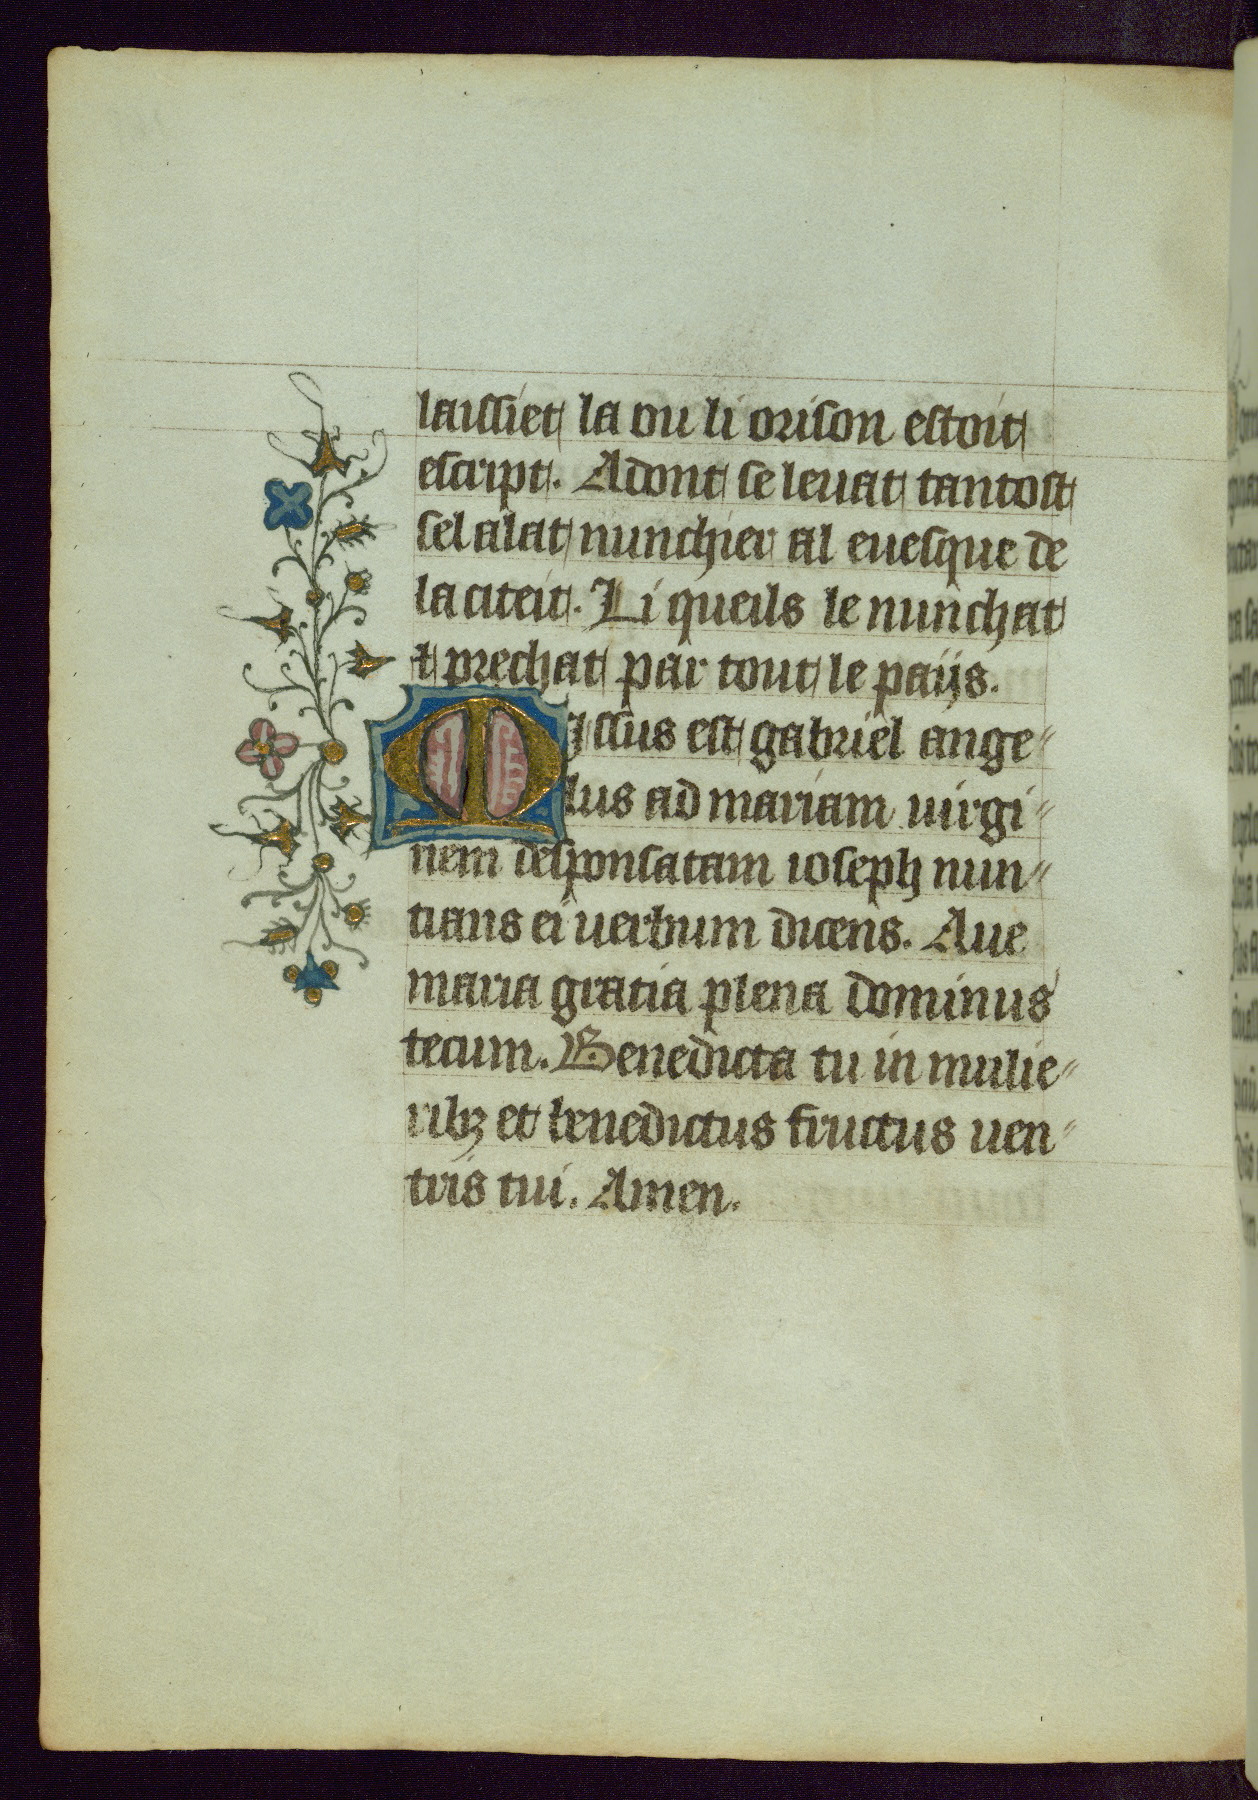 laissiet la ou li orison estoit
escript. Adont se leuat tantost
sel alat nunchier al euesque de
la citeit. Li queils le nunchat
⁊ prechat par tout le paijs.
MIssus est gabriel ange-
lus ad mariam uirgi-
nem desponsatam ioseph nun-
tians ei uerbum dicens. Aue
maria gratia plena dominus
tecum. Benedicta tu in mulie-
ribꝫ et benedictus fructus uen-
tris tui. Amen.